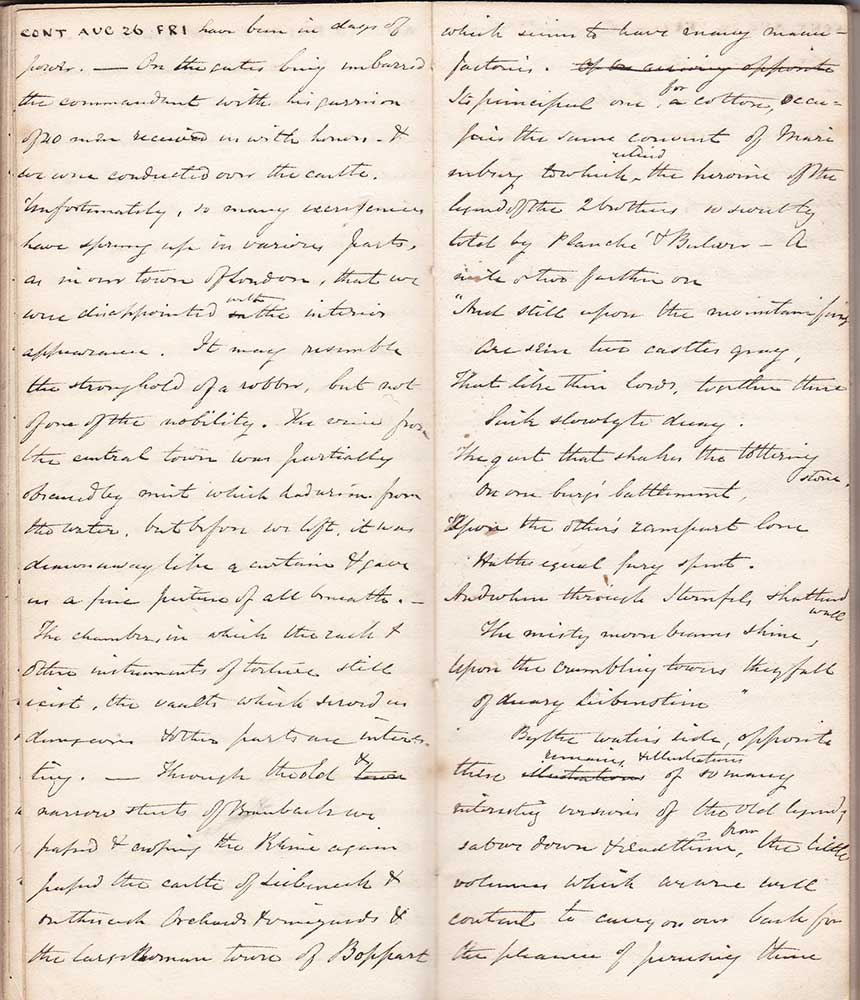 CONT AUG 26 FRI have been in days of
power. — On the gates being unbarred
the commandant with his garrison
of 20 men received us with honors - &
we were conducted over the castle.
Unfortunately, so many excrescences
have sprung up in various parts,
as in our town of London, that we
were disappointed with the interior
appearance. It may resemble
the stronghold of a robber, but not
of one of the nobility. The view from
the central tower was partially
obscured by mist which had arisen from
the water, but before we left, it was
drawn away like a curtain & gave
us a fine picture of all beneath. —
The chamber, in which the rack &
other instruments of torture still
exist, the vaults which served as
dungeons & other parts are interes-
ting. — Through the old &
narrow streets of Braubach we
passed & crossing the Rhine again
passed the castle of Liebeneck &
orchards & vineyards &
the large Roman town of Boppart
which seems to have many manu-
factories. Of an opposite
Its principal one, for a cotton, occu-
pies the same convent of Mari
enburg to which retired the heroine of the
legend of the 2 brothers so sweetly
told by Planché & Bulwer — A
mile or two further on
"And still upon the mountain
Are seen two castles gray,
That like their lords, together there
Sink slowly to decay.
The gust that shakes the tottering stone,
On one burg's battlement,
Upon the other's rampart lone
Hath equal fury spent.
And when through Sternfels shattered wall
The misty moonbeams shine,
Upon the crumbling towers they fall
of dreary Liebenstein "
By the water's side, opposite
these illustrations remains & illustrations of so many
interesting versions of the old legends
sat we down & read them, from the little
volumes which we were well
content to carry on our back for
the pleasure of perusing them